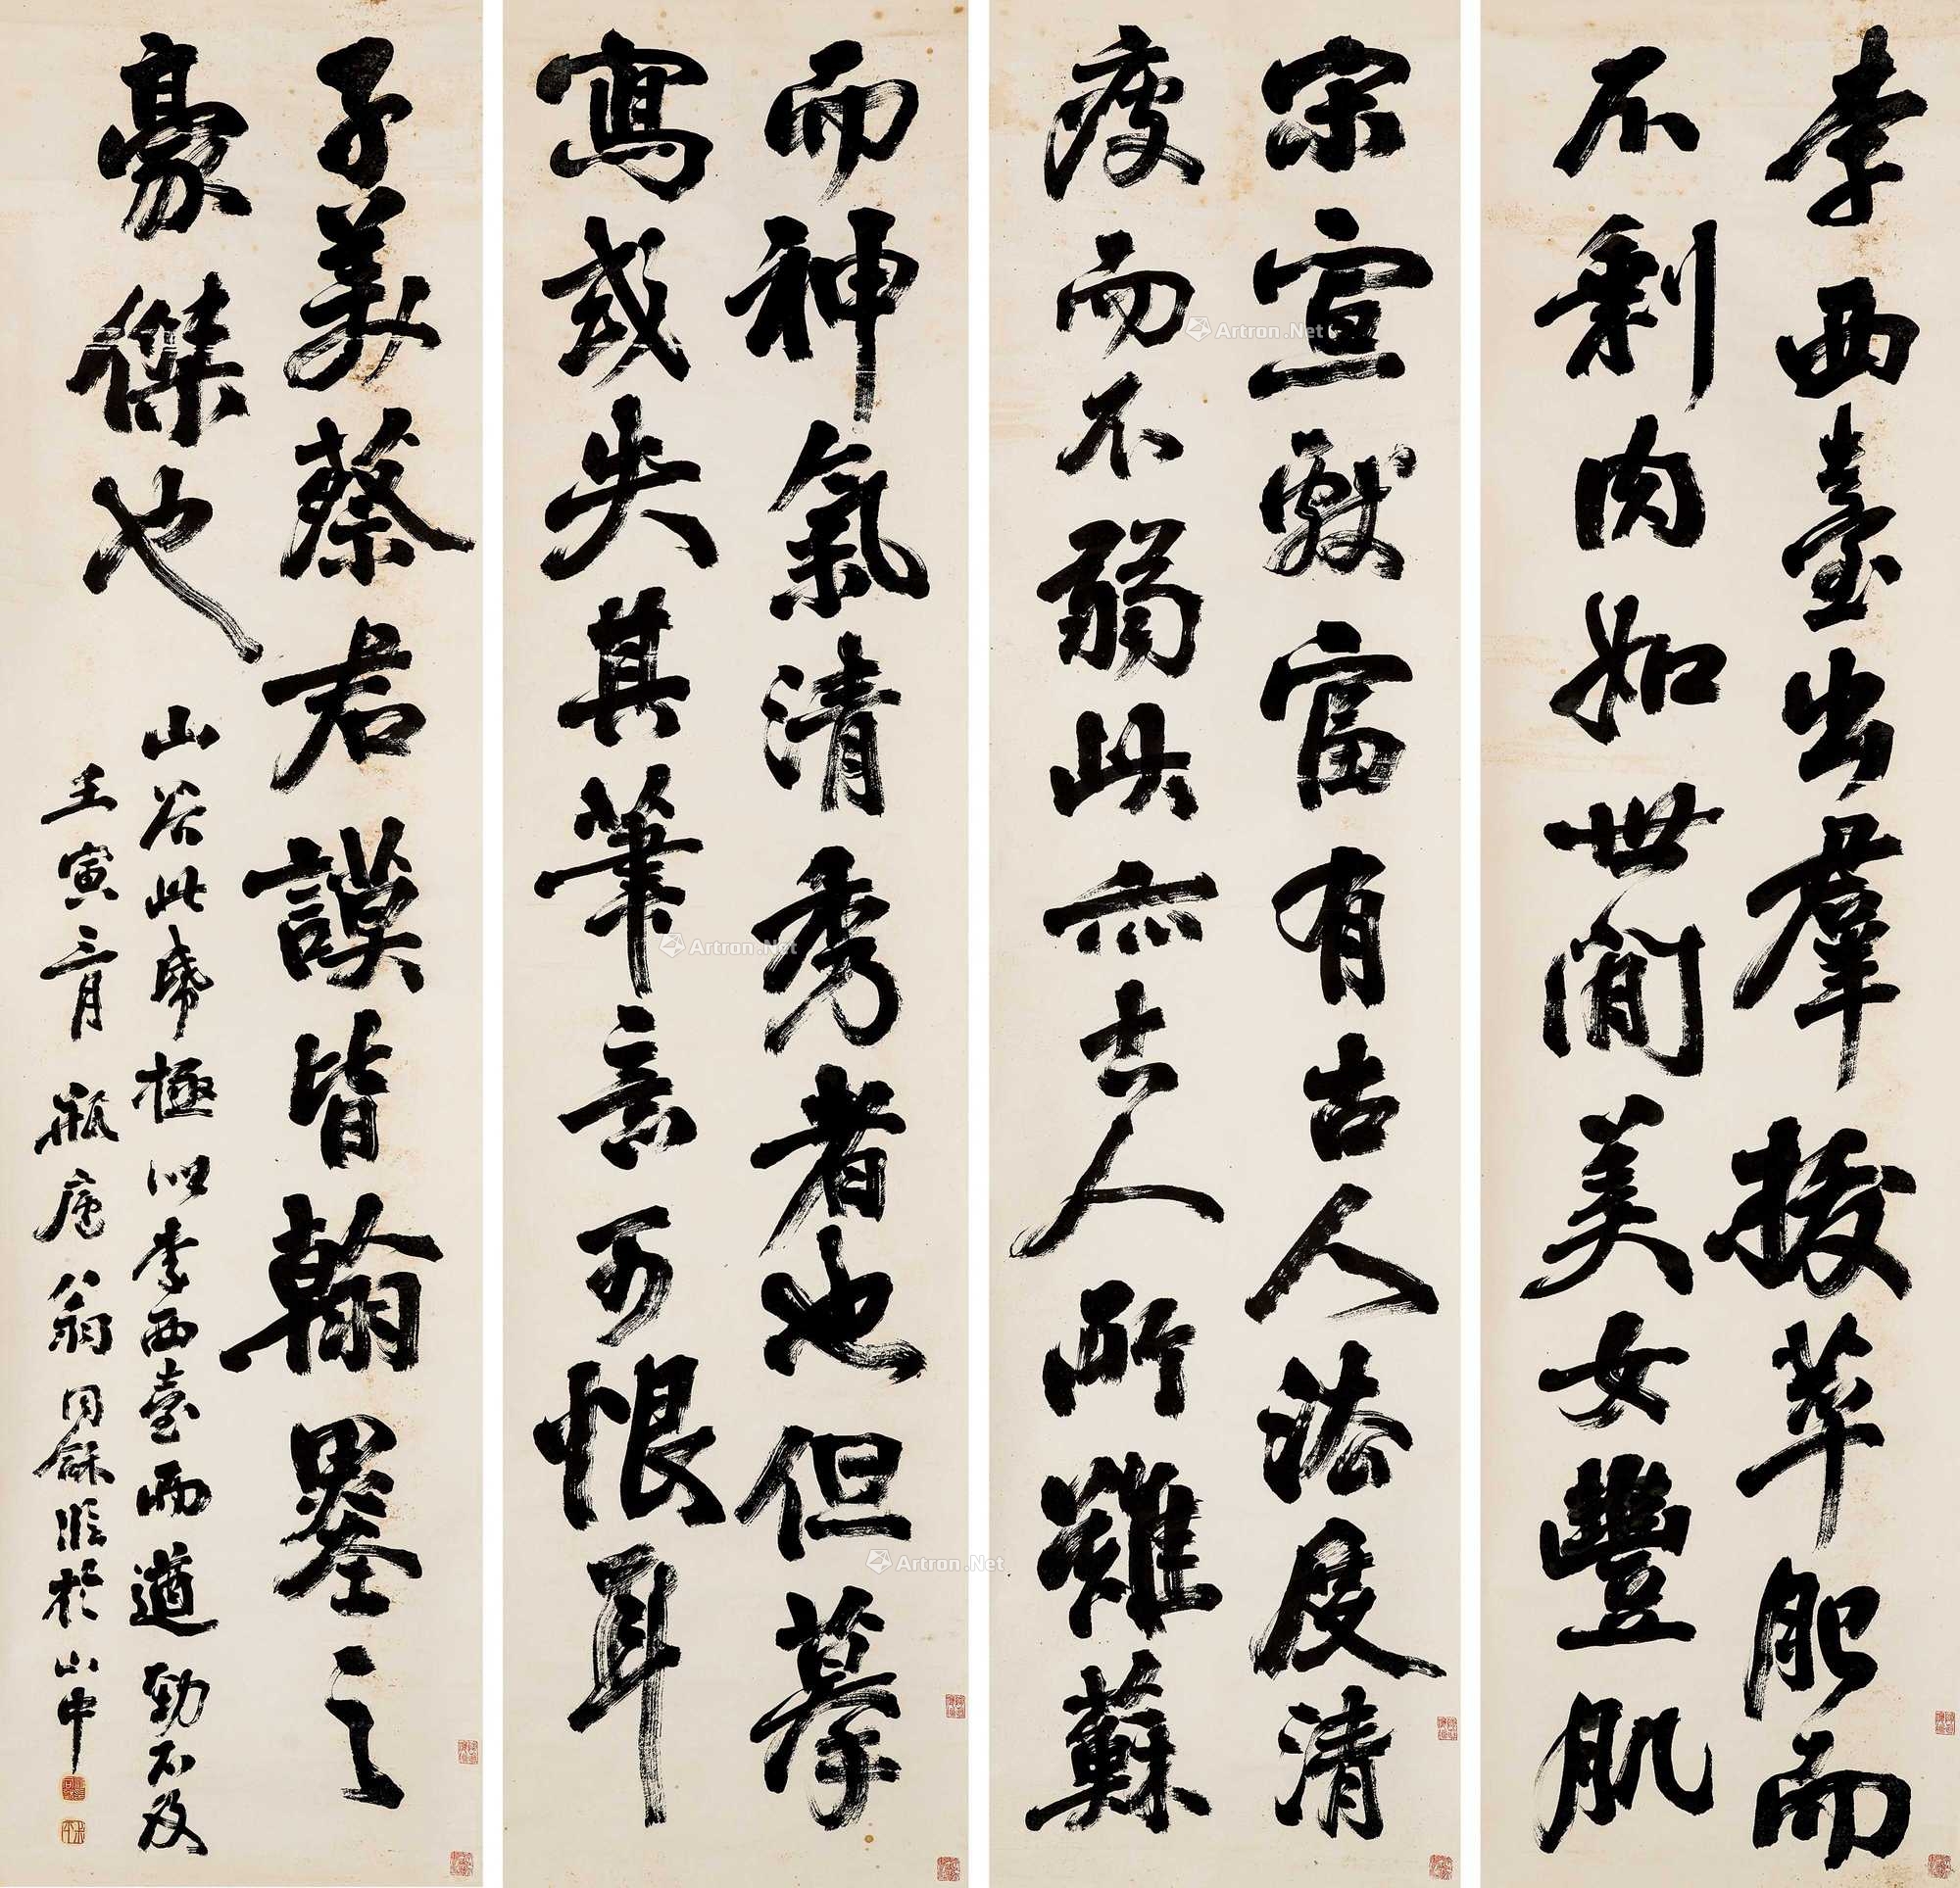 李西臺出羣拔萃肥而
不剩肉如世閒美女豐肌
而神氣清秀者也但摹
寫或失其筆意可恨耳
宋宣獻富有古人法度清
瘦而不弱此亦古人所難蘇
子美蔡君謨皆翰墨之
豪傑也
山谷此帋極似李西臺而遒勁不及
壬寅三月瓶廬翁同龢臨於山中
Artron.Net
Artron.Net
Artron.Net